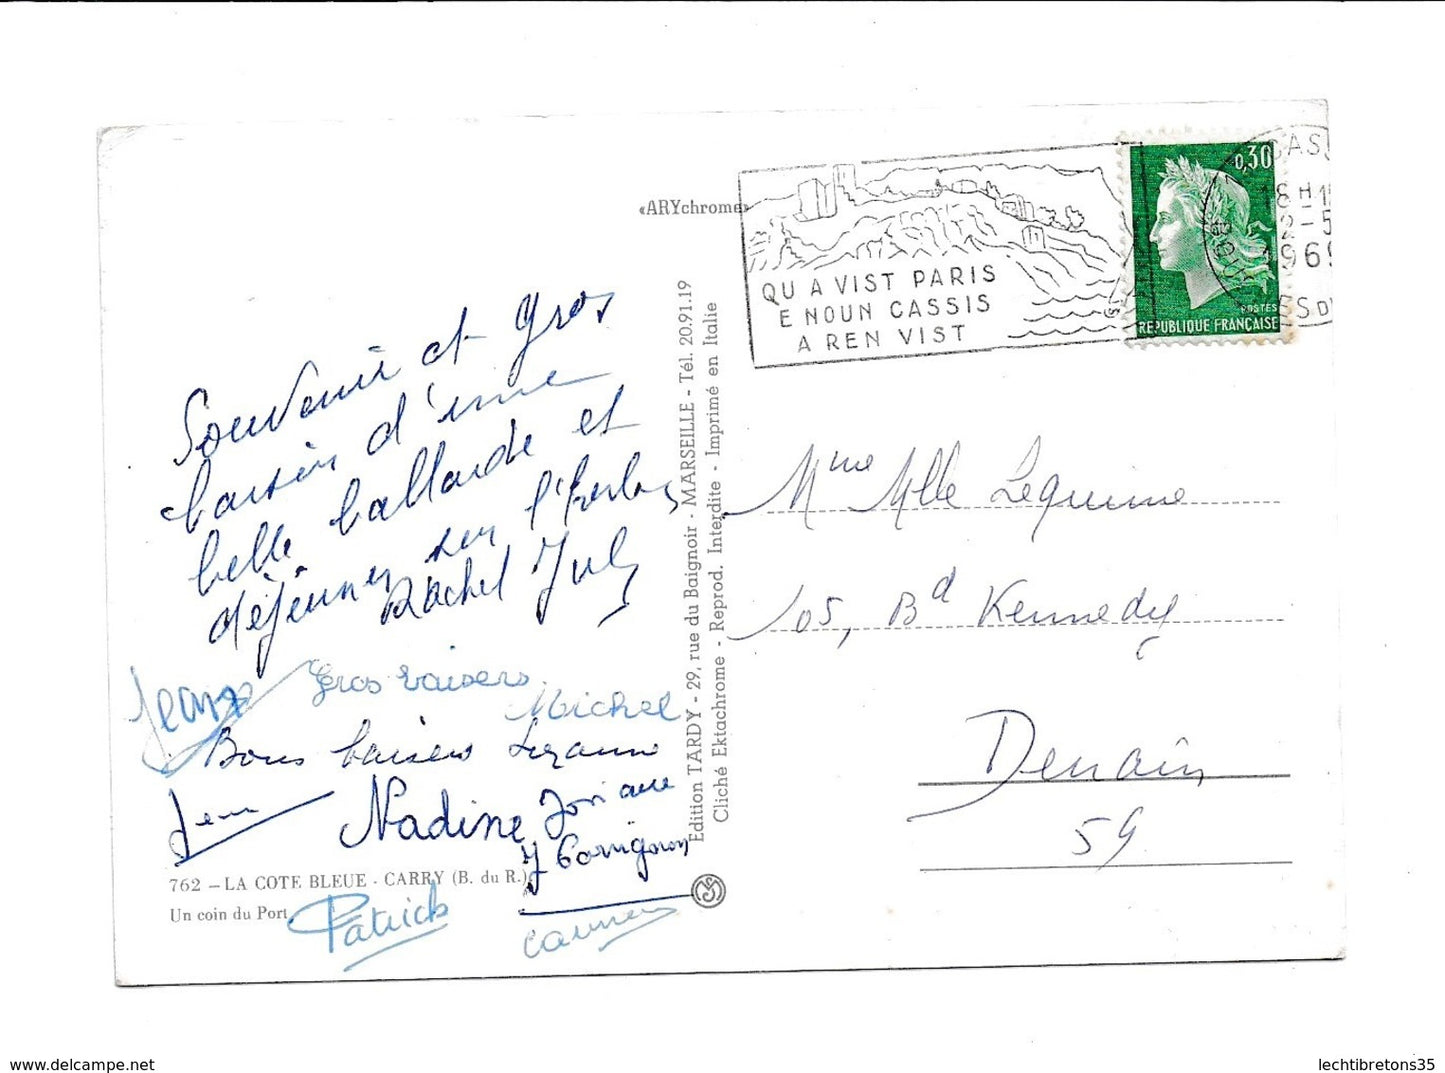 «ARYchrome»
QU A VIST PARIS
E NOUN CASSIS
A REN VIST
0,30
POSTES
REPUBLIQUE FRANÇAISE
CAS
18 H 1
2-5
1969
BOU
ES D
Souvenir et gros
baisers d'une
belle ballade et
déjeuner sur l'herbe
Rachel July
Jean
Gros baisers
Michel
Bons baisers Suzanne
Jean
Nadine Josiane
J Cornignon
762 - LA COTE BLEUE - CARRY (B. du R.)
Un coin du Port
Patrick
Carmen
Edition TARDY - 29, rue du Baignoir - MARSEILLE - Tél. 20.91.19
Cliché Ektachrome - Reprod. Interdite - Imprimé en Italie
Mme Mlle Lequime
105, Bd Kennedy
Denain
59
www.delcampe.net
lechtibretons35